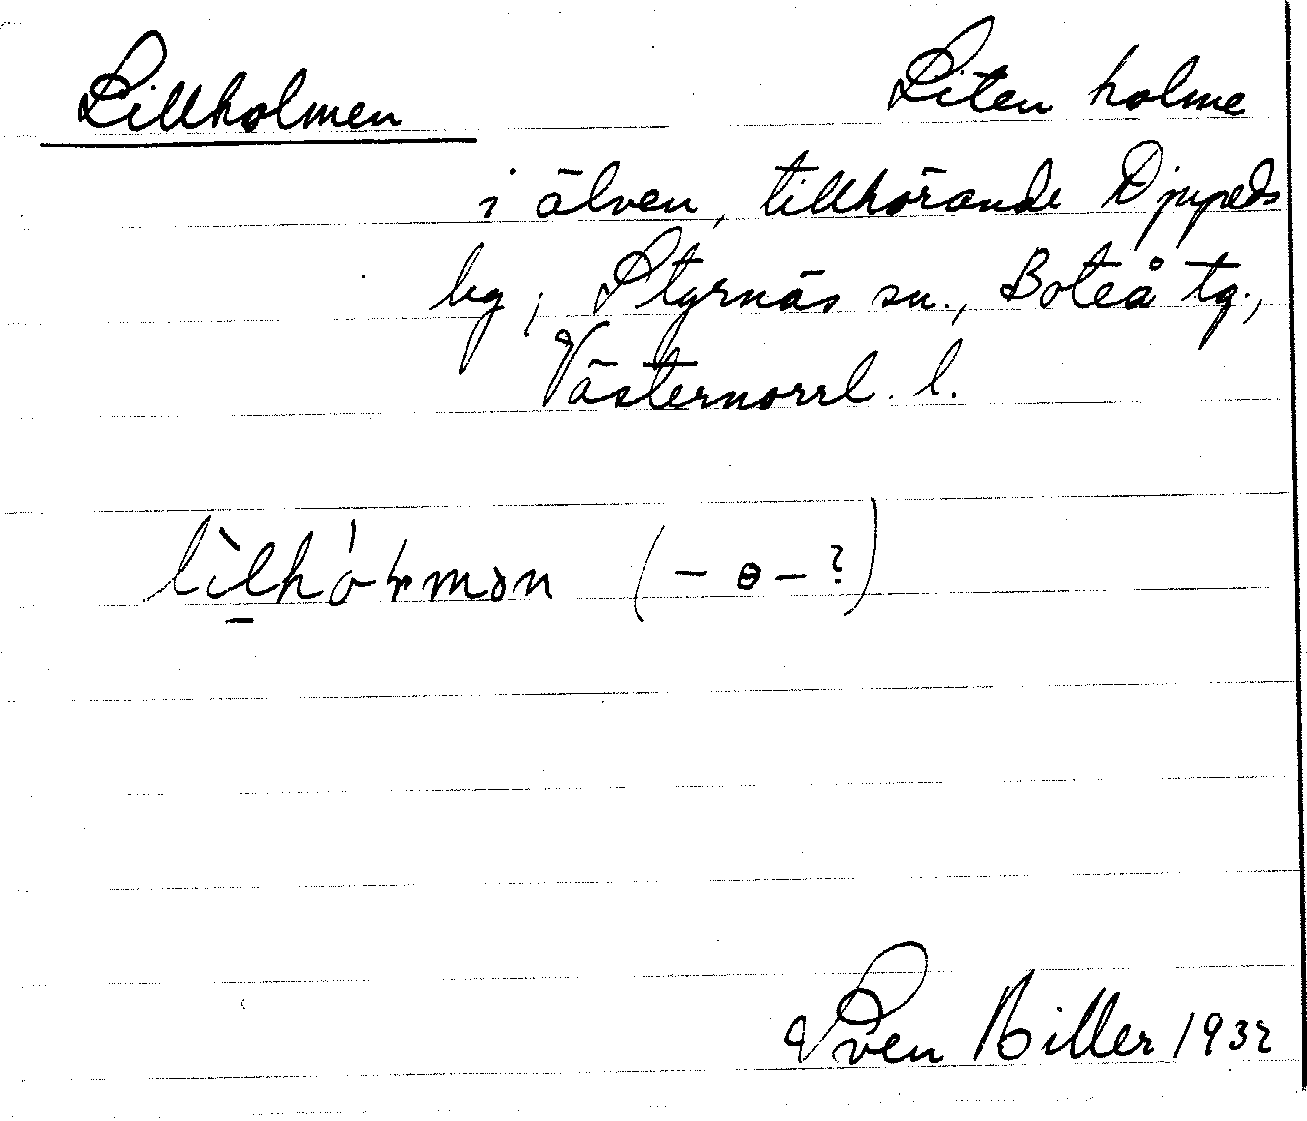 Lillholmen Liten holme
i älven, tillhörande Djupeds
by, Styrnäs sn., Boteå tg.,
Västernorrl. l.
(-ɵ-?)
Sven Biller 1932